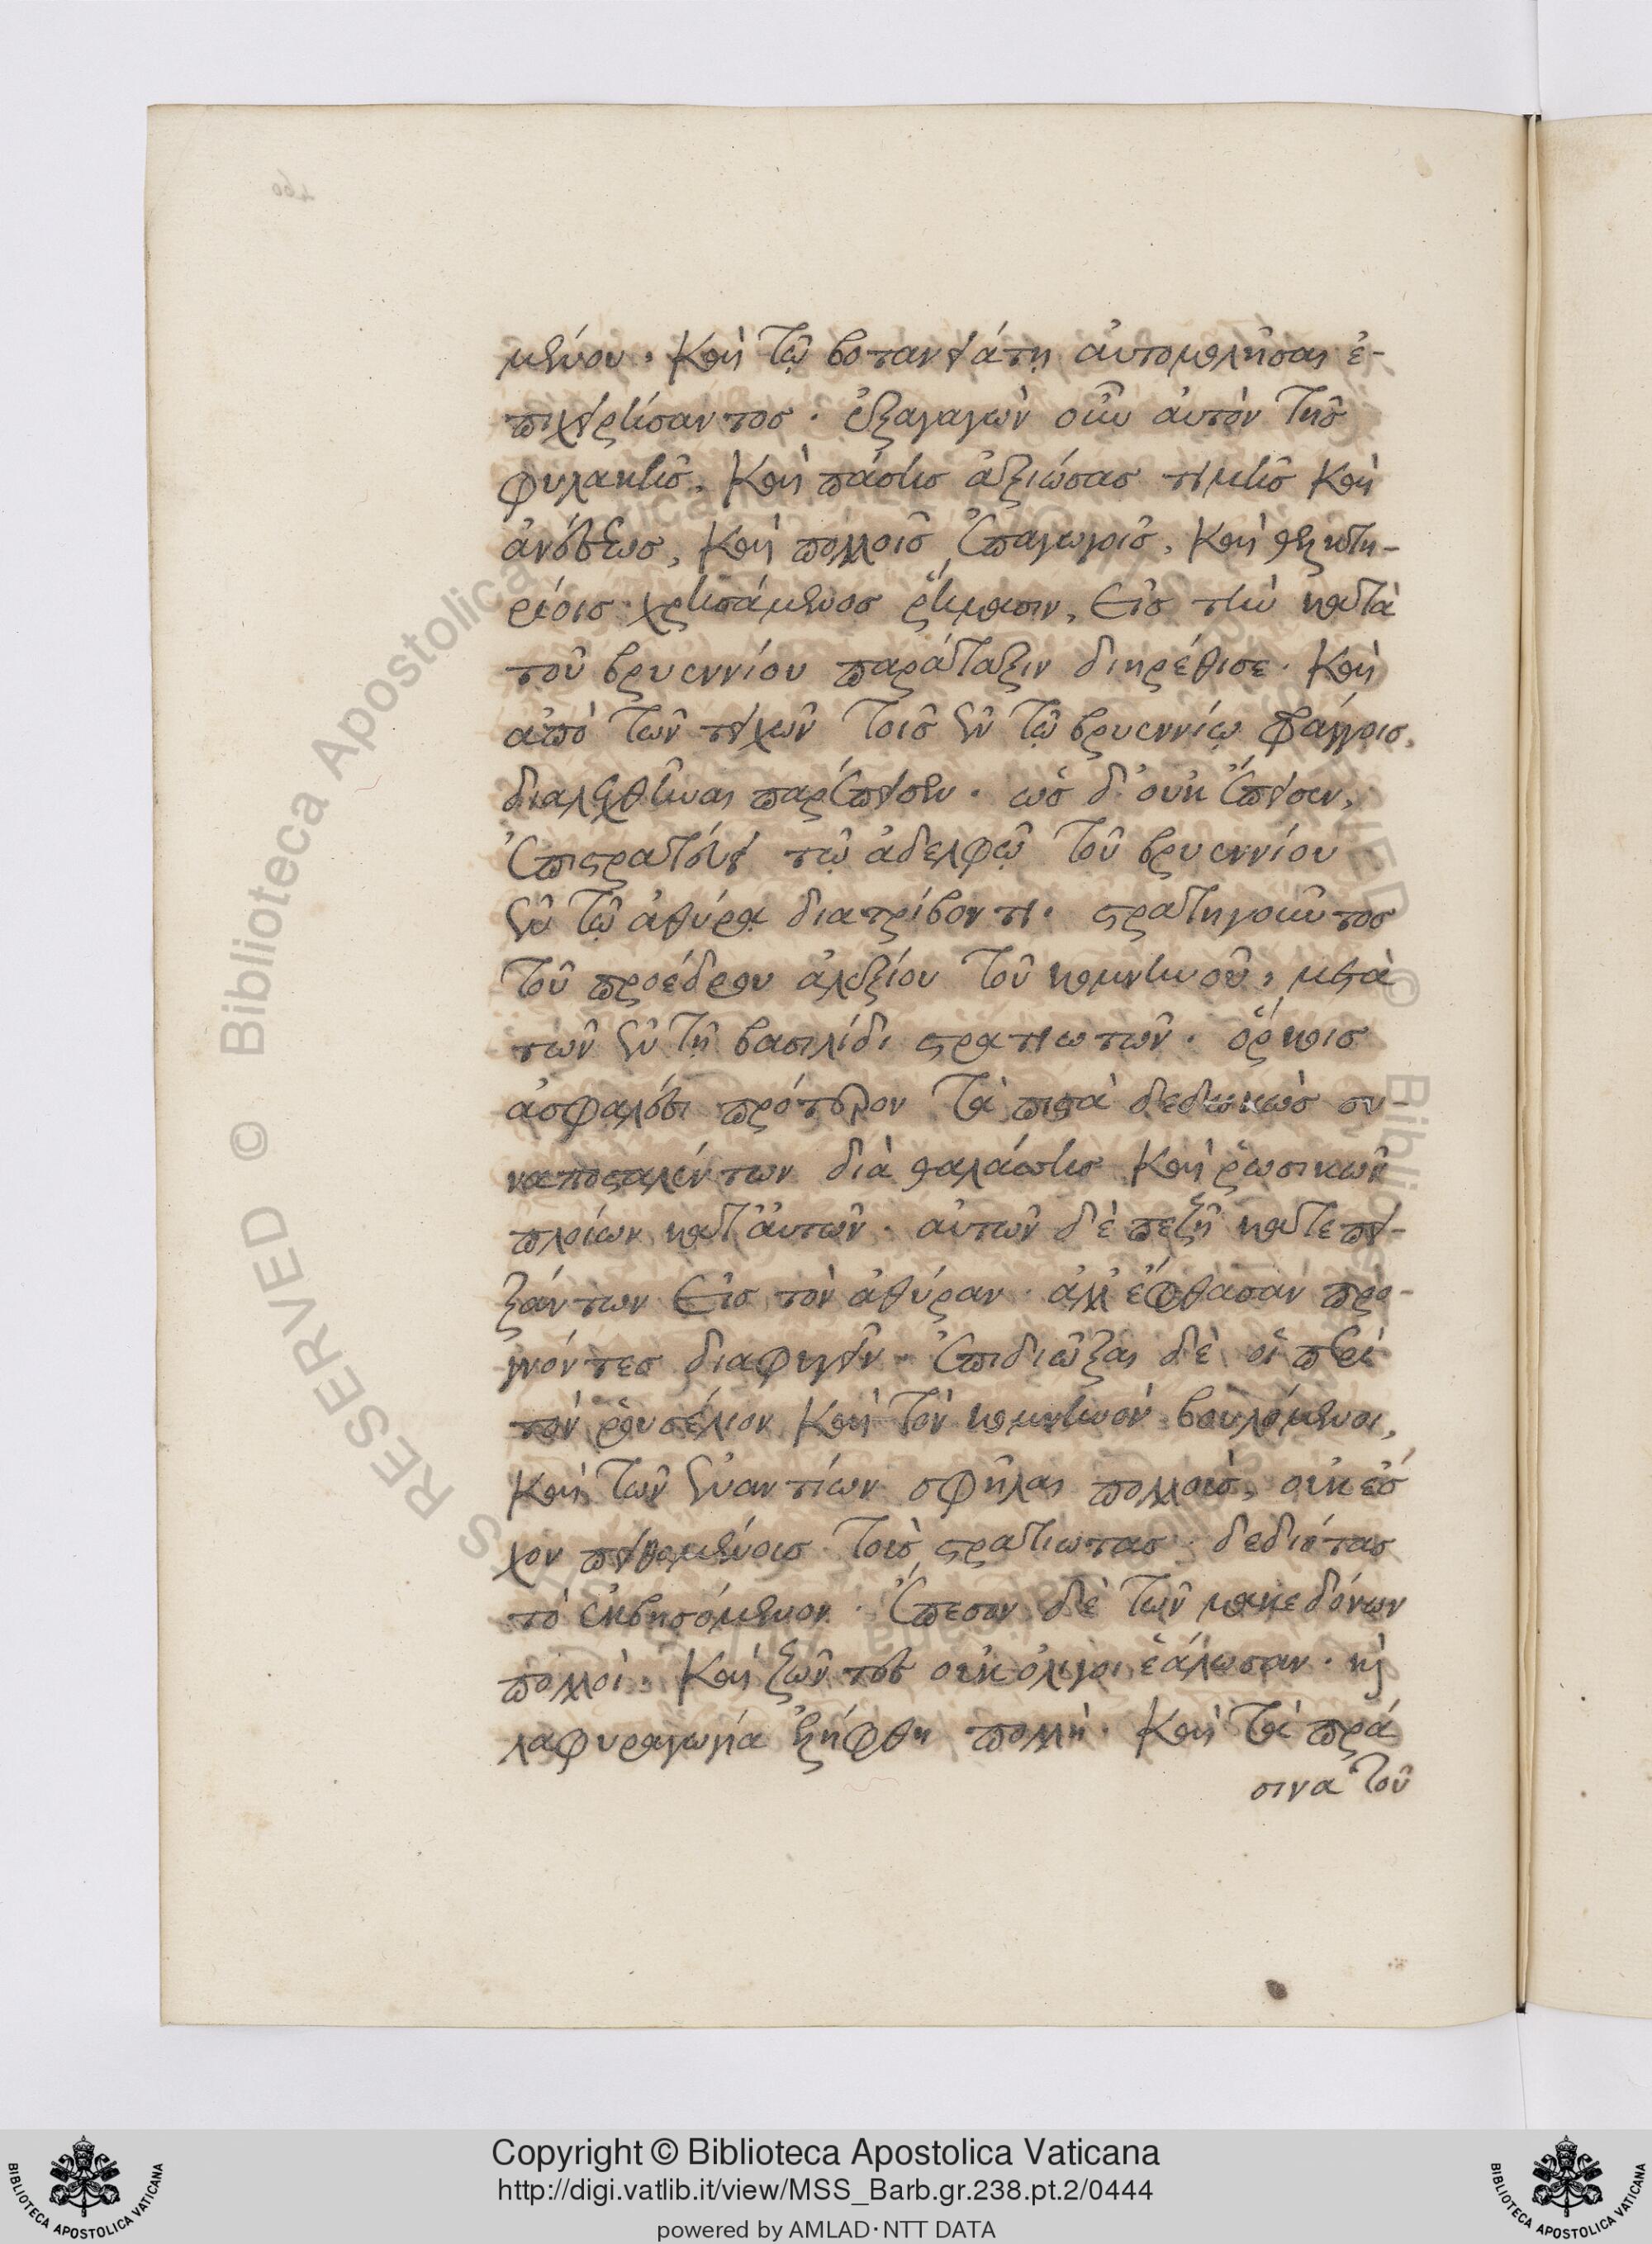 μένου. καὶ τῷ βοτανειάτῃ αὐτομολῆσαι ἐ-
πιχειρήσαντος. ἐξαγαγὼν οὖν αὐτὸν τῆς
φυλακῆς, καὶ πάσης ἀξιώσας τιμῆς καὶ
ἀνέσεως, καὶ πολλοῖς ἐπαγωγοῖς, καὶ θελκτη-
ρίοις χρησάμενος ῥήμασιν, εἰς τὴν κατὰ
τοῦ βρυεννίου παράταξιν διηρέθισε. καὶ
ἀπὸ τῶν τειχῶν τοῖς ἐν τῷ βρυεννίῳ φράγγοις,
διαλεχθῆναι παρέπεισεν. ὡς δ' οὐκ ἔπεισεν,
ἐπιστρατεύει τῷ ἀδελφῷ τοῦ βρυεννίου
ἐν τῷ ἀθύρᾳ διατρίβοντι. στρατηγοῦντος
τοῦ προέδρου ἀλεξίου τοῦ κομνηνοῦ, μετὰ
τῶν ἐν τῇ βασιλίδι στρατιωτῶν. ὅρκοις
ἀσφαλέσι πρότερον τὰ πιστὰ δεδωκὼς συ-
ναποσταλέντων διὰ θαλάσσης καὶ ῥωσικῶν
πλοίων κατ' αὐτῶν. αὐτῶν δὲ πεζῇ κατεπεί-
ξάντων εἰς τὸν ἀθύραν. ἀλλ' ἔφθασαν προ-
γνόντες διαφυγεῖν. ἐπιδιῶξαι δὲ οἱ περὶ
τὸν ῥουσέλιον καὶ τὸν κομνηνὸν βουλόμενοι,
καὶ τῶν ἐναντίων σφῆλαι πολλοὺς, οὐκ ἔσ
χον πειθομένους τοὺς στρατιώτας. δεδιότας
τὸ ἐκβησόμενον. ἔπεσον δὲ τῶν μακεδόνων
πολλοὶ. καὶ ζῶντες οὐκ ὀλίγοι ἑάλωσαν. κὶ
λαφυραγωγία ἐξήφθη πολλὴ. καὶ τὰ πρά
σινα τοῦ
Copyright © Biblioteca Apostolica Vaticana
http://digi.vatlib.it/view/MSS_Barb.gr.238.pt.2/0444
powered by AMLAD·NTT DATA